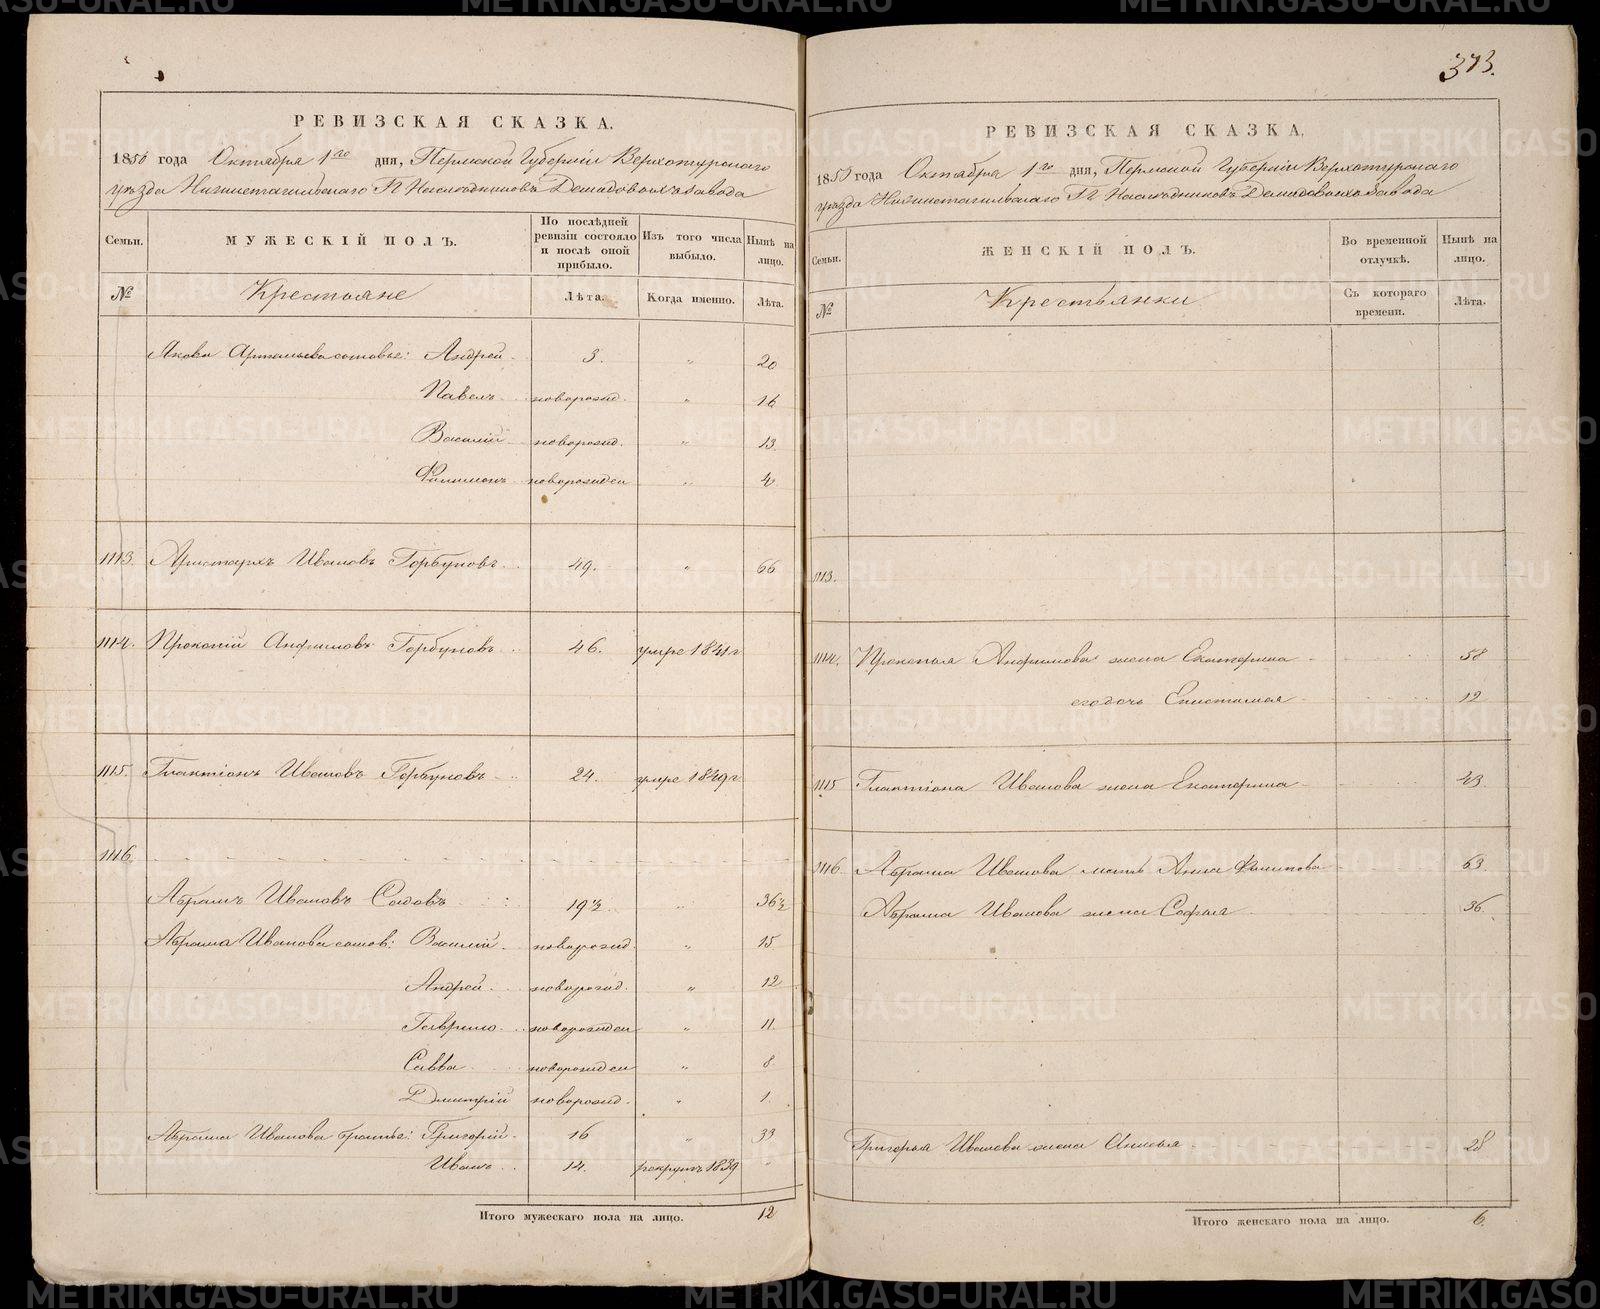 373.
РЕВИЗСКАЯ СКАЗКА.
1850 года Октября 1го дня, Пермской Губерніи Верхотурскаго
уезда Нижнетагильскаго Гг Наследниковъ Демидовыхъ завода
Семьи. МУЖЕСКІЙ ПОЛЪ. По послѣдней ревизіи состояло и послѣ оной прибыло. Изъ того числа выбыло. Нынѣ на лицо.
№ Крестьяне Лѣта. Когда именно. Лѣта.
Якова Артемьева сыновья: Андрей 3. " 20
Павелъ новорожд. " 16
Василій новорожд. " 13
Филимонъ новорожден " 4
1113. Аристархъ Ивановъ Горбуновъ 49. " 66
1114. Прокопій Анфимовъ Горбуновъ 46. умре 1841 г
1115. Галактіонъ Ивановъ Горбуновъ 24. умре 1849 г
1116.
Абрамъ Ивановъ Садовъ 19½ " 36½
Абрама Иванова сынов: Василій новорожд. " 15
Андрей новорожд. " 12
Гаврило новорожден " 11.
Савва новорожден " 8
Дмитрій новорожд. " 1.
Абрама Иванова братья: Григорій 16 " 33
Иванъ 14. рекрутъ 1839
Итого мужескаго пола на лицо. 12
РЕВИЗСКАЯ СКАЗКА.
1850 года Октября 1го дня, Пермской Губерніи Верхотурскаго
уезда Нижнетагильскаго Гг Наследниковъ Демидовыхъ завода
Семьи. ЖЕНСКІЙ ПОЛЪ. Во временной отлучкѣ. Нынѣ на лицо.
№ Крестьянки Съ котораго времени. Лѣта.
1113.
1114. Прокопья Анфимова жена Екатерина 58
его дочь Епистимея 12
1115 Галактіона Иванова жена Екатерина 43.
1116. Абрама Иванова мать Анна Филипова 63.
Абрама Иванова жена Софья 36.
Григорья Иванова жена Анисья 28
Итого женскаго пола на лицо. 6.
METRIKI.GASO-URAL.RU